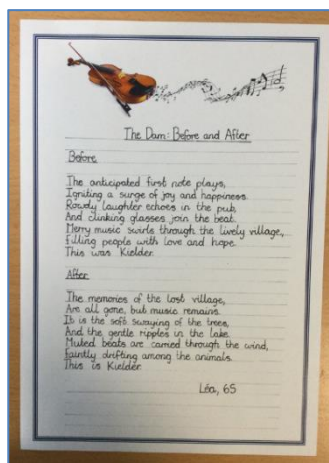 The Dam: Before and After
Before
The anticipated first note plays,
Igniting a surge of joy and happiness.
Rowdy laughter echoes in the pub,
And clinking glasses join the beat.
Merry music swirls through the lively village,
filling people with love and hope.
This was Kielder.
After
The memories of the lost village,
Are all gone, but music remains.
It is the soft swaying of the trees,
And the gentle ripples in the lake.
Muted beats are carried through the wind,
faintly drifting among the animals.
This is Kielder.
Léa, 6S